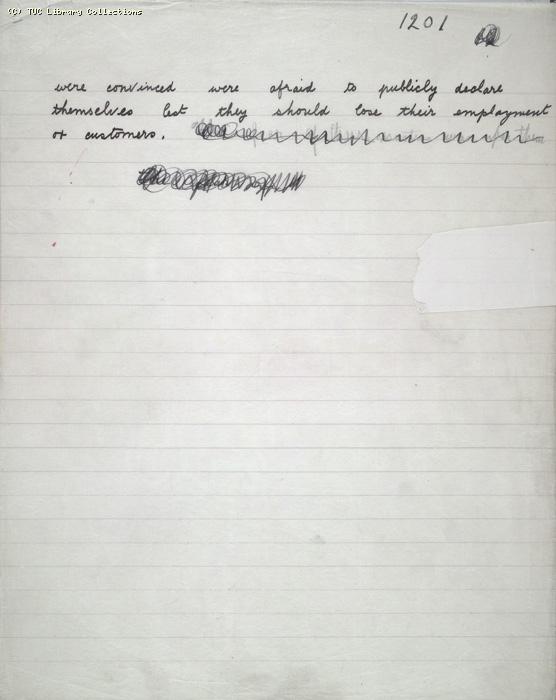 (C) TUC Library Collections
1201
were convinced were afraid to publicly declare
themselves lest they should lose their employment
or customers.